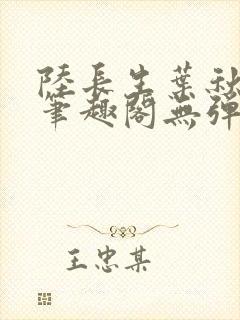 陸長生葉秋
筆趣閣無彈
王忠某